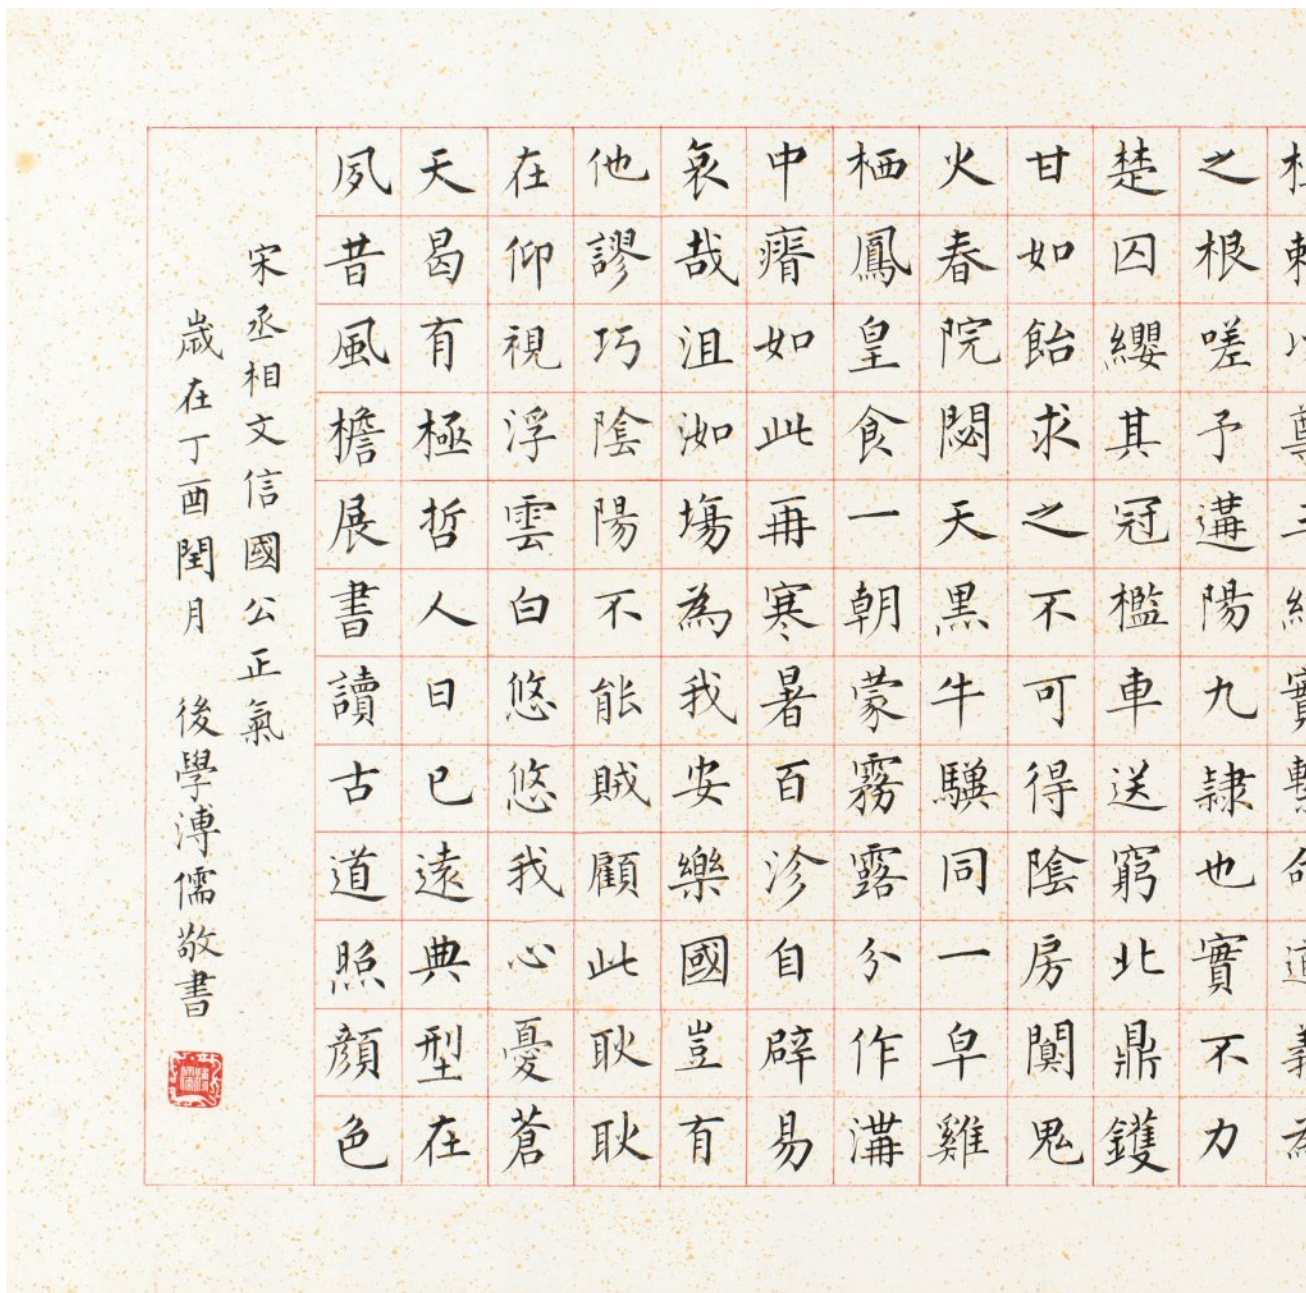 之根嗟予遘陽九隷也實不力
楚囚纓其冠檻車送窮北鼎鑊
甘如飴求之不可得隂房闃鬼
火春院閟天黑牛驥同一皁雞
栖鳳皇食一朝蒙霧露分作溝
中瘠如此再寒暑百沴自辟易
哀哉沮洳塲為我安樂國豈有
他謬巧隂陽不能賊顧此耿耿
在仰視浮雲白悠悠我心憂蒼
天曷有極哲人日已遠典型在
夙昔風檐展書讀古道照顏色
宋丞相文信國公正氣
歲在丁酉閏月 後學溥儒敬書